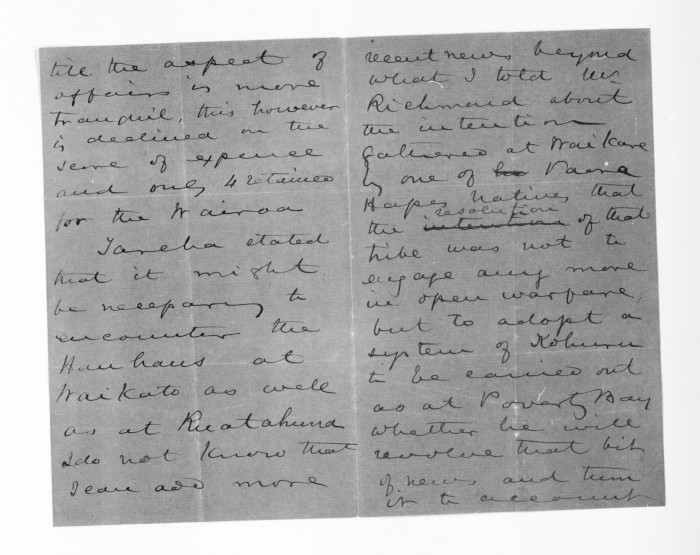 till the aspect of
affairs is more
tranquil, this however
is declined on the
score of expence
and only 4 retained
for the Wairoa
Tareha stated
that it might
be necessary to
encounter the
Hauhaus at
Waikato as well
as at Ruatahuna
I do not know that
I can add more
recent news beyond
what I told Mr
Richmond about
the intention
gathered at Waikare
by one of Paora
Hapes Natives that
the resolution
intention of that
tribe was not to
engage any more
in open warfare,
but to adopt a
system of Kohuru
to be carried out
as at Poverty Bay
whether he will
revolve that bit
of news and turn
it to account